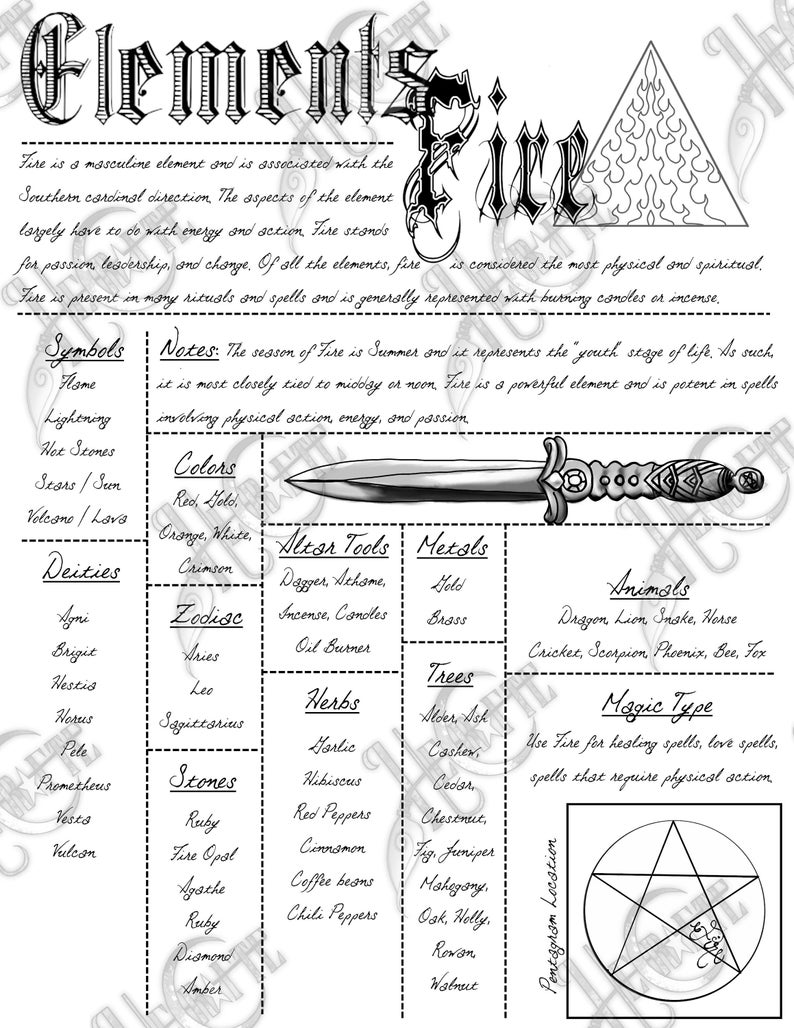 Elements
Fire
Fire is a masculine element and is associated with the
Southern cardinal direction. The aspects of the element
largely have to do with energy and action. Fire stands
for passion, leadership, and change. Of all the elements, fire is considered the most physical and spiritual.
Fire is present in many rituals and spells and is generally represented with burning candles or incense.
Symbols
Flame
Lightning
Hot Stones
Stars / Sun
Volcano / Lava
Notes: The season of Fire is Summer and it represents the "youth" stage of life. As such,
it is most closely tied to midday or noon. Fire is a powerful element and is potent in spells
involving physical action, energy, and passion.
Deities
Agni
Brigit
Hestia
Horus
Pele
Prometheus
Vesta
Vulcan
Colors
Red, Gold,
Orange, White,
Crimson
Zodiac
Aries
Leo
Sagittarius
Stones
Ruby
Fire Opal
Agathe
Ruby
Diamond
Amber
Altar Tools
Dagger, Athame,
Incense, Candles
Oil Burner
Herbs
Garlic
Hibiscus
Red Peppers
Cinnamon
Coffee beans
Chili Peppers
Metals
Gold
Brass
Trees
Alder, Ash
Cashew,
Cedar,
Chestnut,
Fig, Juniper
Mahogany,
Oak, Holly,
Rowan,
Walnut
Animals
Dragon, Lion, Snake, Horse
Cricket, Scorpion, Phoenix, Bee, Fox
Magic Type
Use Fire for healing spells, love spells,
spells that require physical action.
Pentagram Location